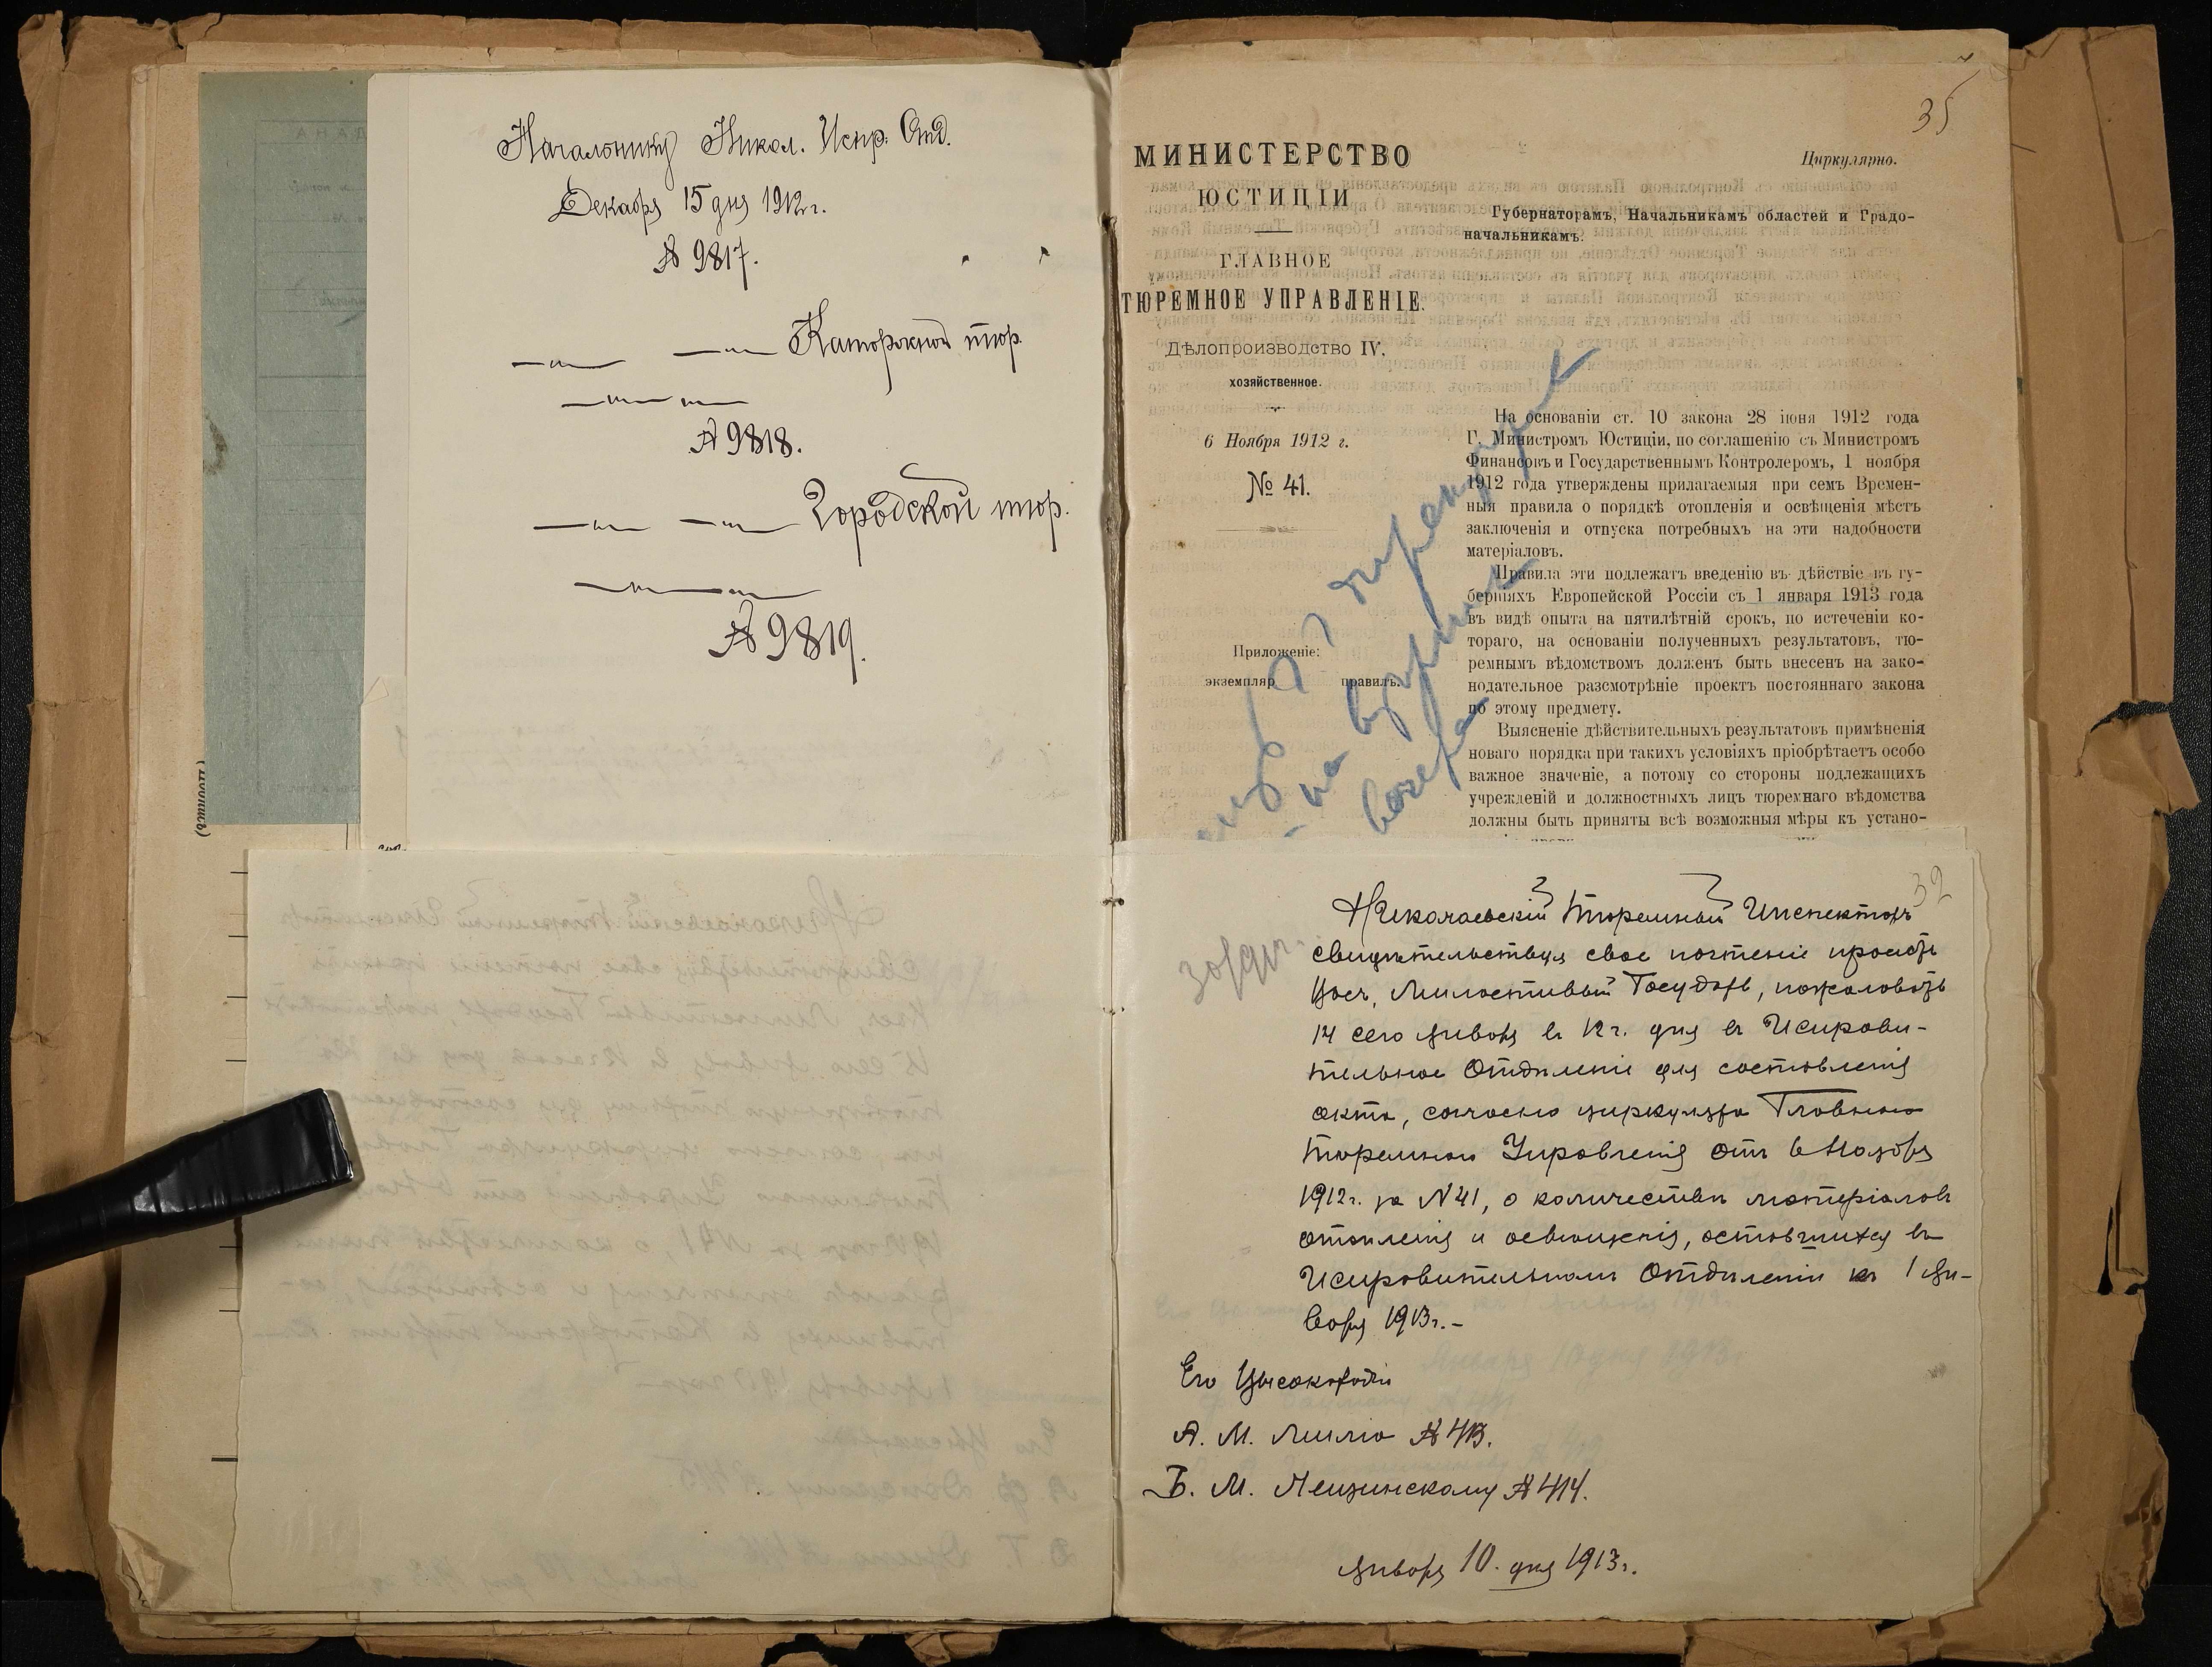 Начальнику Никол. Испр. Отд.
Декабря 15 дня 1912 г.
№ 9817.
—„— —„— Каторжной тюр.
—„— „—
№ 9818.
—„— —„— Городской тюр.
—„— „—
№ 9819.
35
МИНИСТЕРСТВО
ЮСТИЦІИ
ГЛАВНОЕ
ТЮРЕМНОЕ УПРАВЛЕНІЕ.
Дѣлопроизводство IV.
хозяйственное.
6 Ноября 1912 г.
№ 41.
Приложеніе:
экземпляр правилъ.
Циркулярно.
Губернаторамъ, Начальникамъ областей и Градо-
начальникамъ.
На основаніи ст. 10 закона 28 іюня 1912 года
Г. Министромъ Юстиціи, по соглашенію съ Министромъ
Финансовъ и Государственнымъ Контролеромъ, 1 ноября
1912 года утверждены прилагаемыя при семъ Времен-
ныя правила о порядкѣ отопленія и освѣщенія мѣстъ
заключенія и отпуска потребныхъ на эти надобности
матеріаловъ.
Правила эти подлежатъ введенію въ дѣйствіе въ гу-
берніяхъ Европейской Россіи съ 1 января 1913 года
въ видѣ опыта на пятилѣтній срокъ, по истеченіи ко-
тораго, на основаніи полученныхъ результатовъ, тю-
ремнымъ вѣдомствомъ долженъ быть внесенъ на зако-
нодательное разсмотрѣніе проектъ постояннаго закона
по этому предмету.
Выясненіе дѣйствительныхъ результатовъ примѣненія
новаго порядка при такихъ условіяхъ пріобрѣтаетъ особо
важное значеніе, а потому со стороны подлежащихъ
учрежденій и должностныхъ лицъ тюремнаго вѣдомства
должны быть приняты всѣ возможныя мѣры къ устано-
32
Николаевскій Тюремный Инспекторъ
свидѣтельствуя свое почтеніе проситъ
Васъ, Милостивый Государь, пожаловать
14 сего января въ 12 ч. дня въ Исправи-
тельное Отдѣленіе для составленія
акта, согласно циркуляра Главнаго
Тюремнаго Управленія отъ 6 Ноября
1912 г. за N 41, о количествѣ матеріаловъ
отопленія и освѣщенія, оставшихся въ
Исправительномъ Отдѣленіи къ 1 Ян-
варя 1913 г.-
Его Высокородію
А. М. № 413.
Б. М. Лещинскому № 414.
Января 10 дня 1913 г.